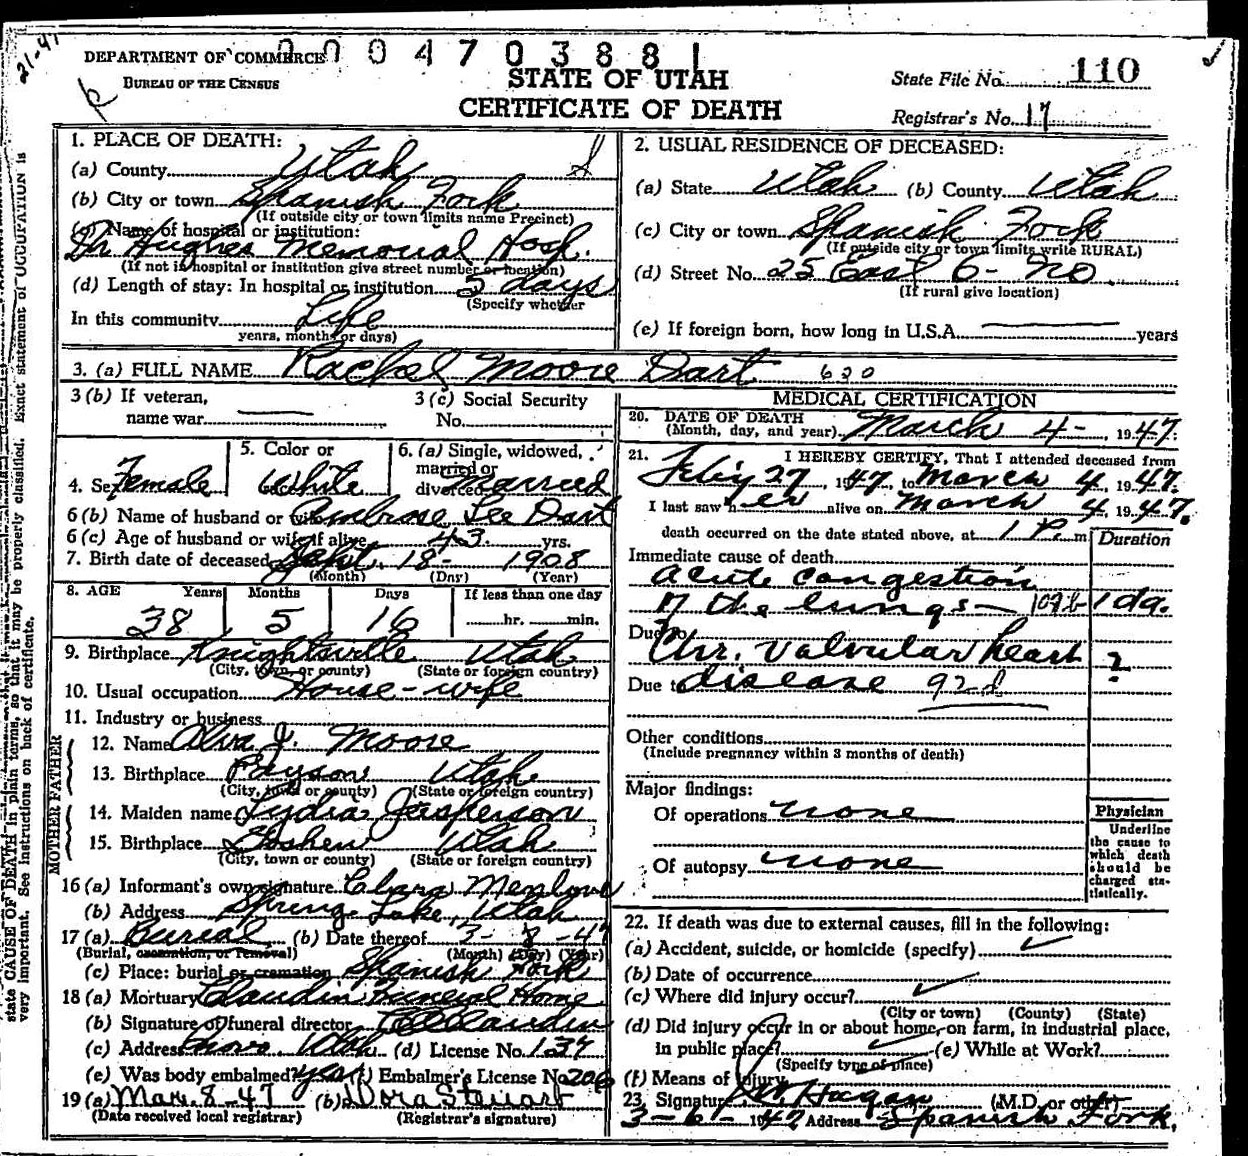 21-47
0004703881
DEPARTMENT OF COMMERCE
BUREAU OF THE CENSUS
STATE OF UTAH
CERTIFICATE OF DEATH
State File No. 110
Registrar's No. 17
state CAUSE OF DEATH in plain terms, so that it may be properly classified. Exact statement of OCCUPATION is
very important. See instructions on back of certificate.
1. PLACE OF DEATH:
(a) County Utah
(b) City or town Spanish Fork
(If outside city or town limits name Precinct)
(c) Name of hospital or institution:
Dr Hughes Memorial Hosp.
(If not in hospital or institution give street number or location)
(d) Length of stay: In hospital or institution 5 days
(Specify whether
In this community Life
years, months or days)
2. USUAL RESIDENCE OF DECEASED:
(a) State Utah (b) County Utah
(c) City or town Spanish Fork
(If outside city or town limits write RURAL)
(d) Street No. 25 East 6 - No.
(If rural give location)
(e) If foreign born, how long in U.S.A. years
3. (a) FULL NAME Rachel Moore Dart 620
3 (b) If veteran,
name war
3 (c) Social Security
No.
4. Sex Female
5. Color or
White
6. (a) Single, widowed,
married or
divorced Married
6 (b) Name of husband or wife Ambrose Lee Dart
6 (c) Age of husband or wife if alive 43 yrs.
7. Birth date of deceased Sept. 18 - 1908
(Month) (Day) (Year)
8. AGE Years Months Days If less than one day
38 5 16 hr. min.
9. Birthplace Knightsville Utah
(City, town, or county) (State or foreign country)
10. Usual occupation House-wife
11. Industry or business
FATHER
12. Name Alva J. Moore
13. Birthplace Payson Utah
(City, town or county) (State or foreign country)
MOTHER
14. Maiden name Lydia Jasperson
15. Birthplace Goshen Utah
(City, town or county) (State or foreign country)
16 (a) Informant's own signature Clara Menlove
(b) Address Spring Lake, Utah
17 (a) Burial (b) Date thereof 3-8-47
(Burial, cremation, or removal) (Month) (Day) (Year)
(c) Place: burial or cremation Spanish Fork
18 (a) Mortuary Claudin Funeral Home
(b) Signature of funeral director Claudin
(c) Address Provo Utah (d) License No. 137
(e) Was body embalmed? yes (f) Embalmer's License No. 206
19 (a) Mar. 8-47 (b) Dora Stewart
(Date received local registrar) (Registrar's signature)
MEDICAL CERTIFICATION
20. DATE OF DEATH
(Month, day, and year) March 4-, 1947.
21. I HEREBY CERTIFY, That I attended deceased from
Feby 27, 1947, to March 4, 1947.
I last saw her alive on March 4, 1947.
death occurred on the date stated above, at 1 P. m
Duration
Immediate cause of death
Acute congestion
of the lungs - 107b 1 da.
Due to
Chr. Valvular heart ?
Due to disease 92d
Other conditions
(Include pregnancy within 3 months of death)
Major findings:
Of operations none
Of autopsy none
Physician
Underline
the cause to
which death
should be
charged sta-
tistically.
22. If death was due to external causes, fill in the following:
(a) Accident, suicide, or homicide (specify)
(b) Date of occurrence
(c) Where did injury occur?
(City or town) (County) (State)
(d) Did injury occur in or about home, on farm, in industrial place,
in public place? (e) While at Work?
(Specify type of place)
(f) Means of injury
23. Signature Hagan (M.D. or other)
3-6-1947 Address Spanish Fork.